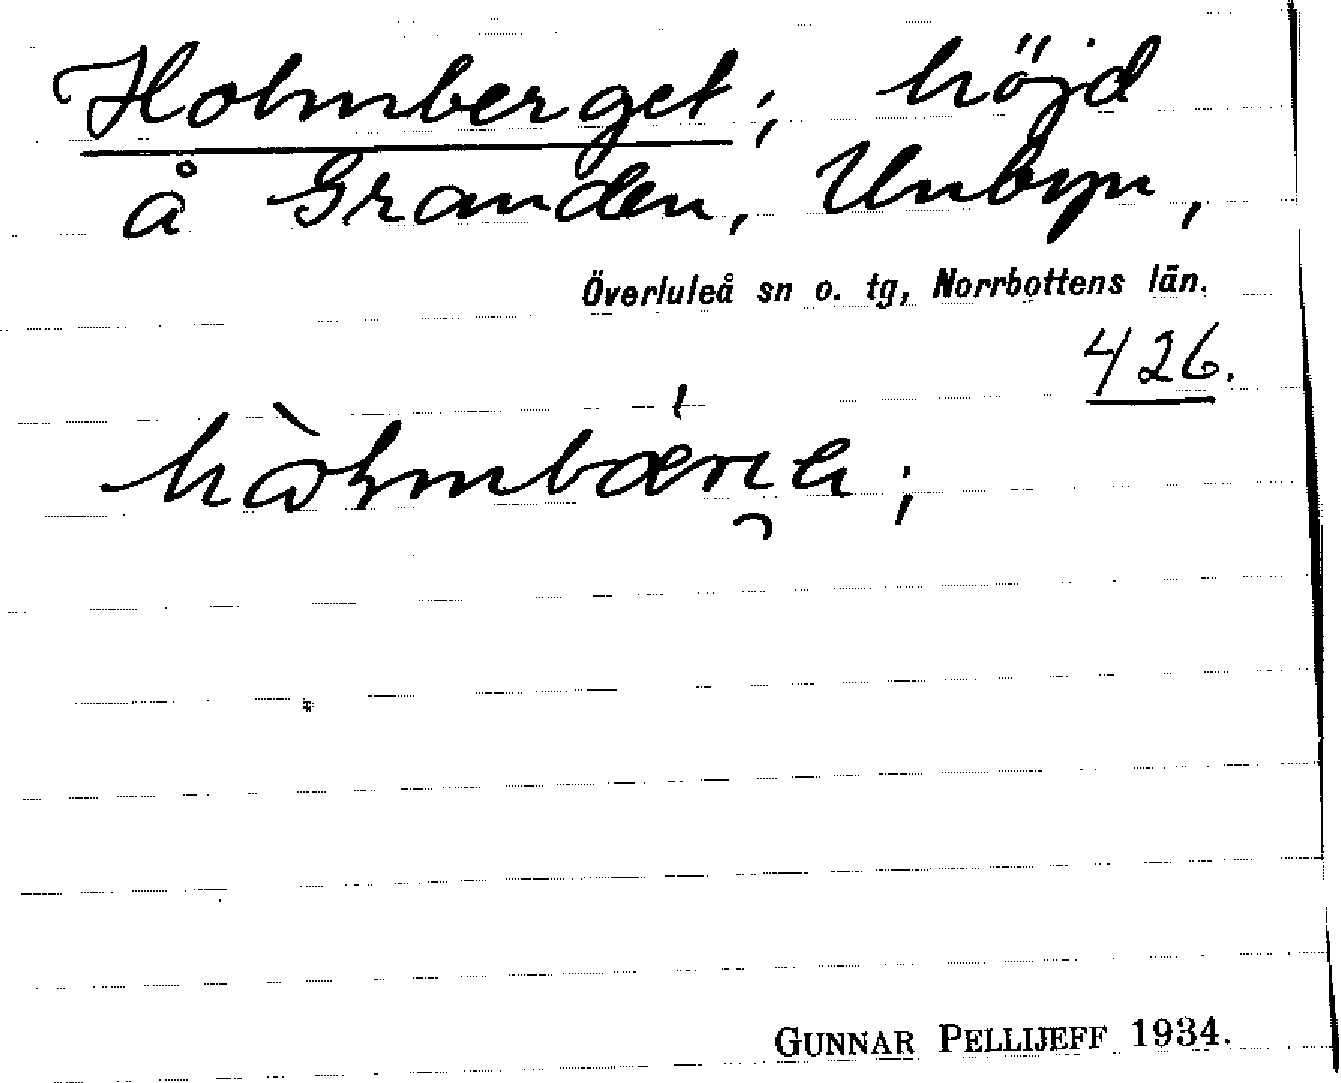 Holmberget; höjd
å Granden, Unbyn,
Överluleå sn o. tg, Norrbottens län.
426.
GUNNAR PELLIJEFF 1934.